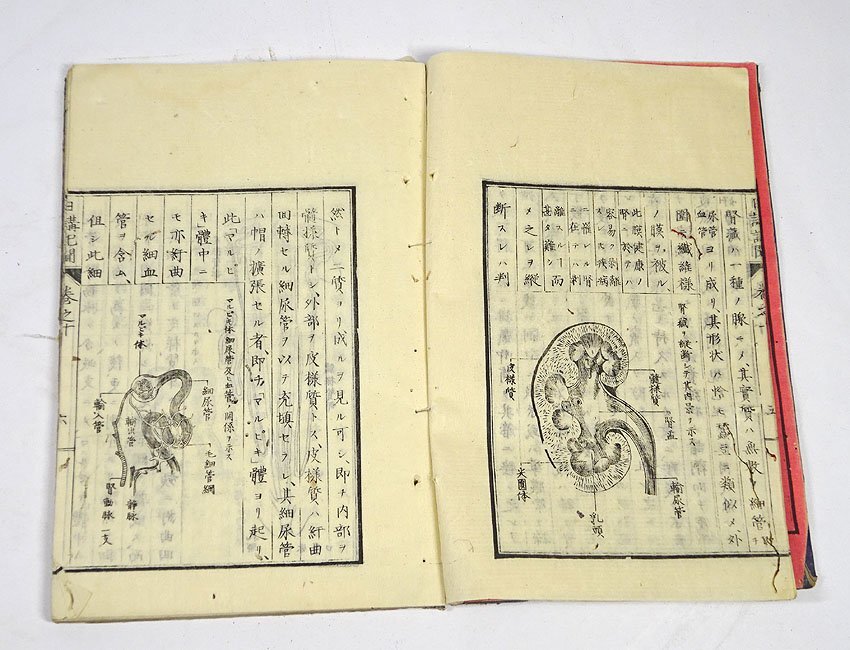 腎臓ハ一種ノ腺ニメ其實質ハ無数ノ細管
尿管ヨリ成リ其形状ハ恰モ蚕豆ニ類似メ外
圍纖維様
ノ膜ヲ被ル
此膜健康ノ
腎ニ於テハ
容易ク剥離
スレ圧疾病
ニ罹レル腎
ニ在テハ剥
離スル
甚タ難シ而
メ之レヲ縱
断スレハ判
腎臓ヲ縱断シテ其内景ヲ示ス
皮様質
髄様質
腎盂
輸尿管
乳頭
尖圓体
然トメ二質ヨリ成ルヲ見ル可シ即チ内部ヲ
髄様質トシ外部ヲ皮様質トス皮様質ハ紆曲
回轉セル細尿管ヲ以テ充填セラレ其細尿管
ハ帽ノ擴張セル者即チマルピキ體ヨリ起リ
此「マルピ
キ」體中ニ
モ亦紆曲
セル細血
管ヲ含ム
但シ此細
マルピキ体細尿管及ヒ血管ノ関係ヲ示ス
マルピキ体
細尿管
毛細管網
輸入管
輸出管
静脉
腎動脉一支
日講記聞
巻之十
六